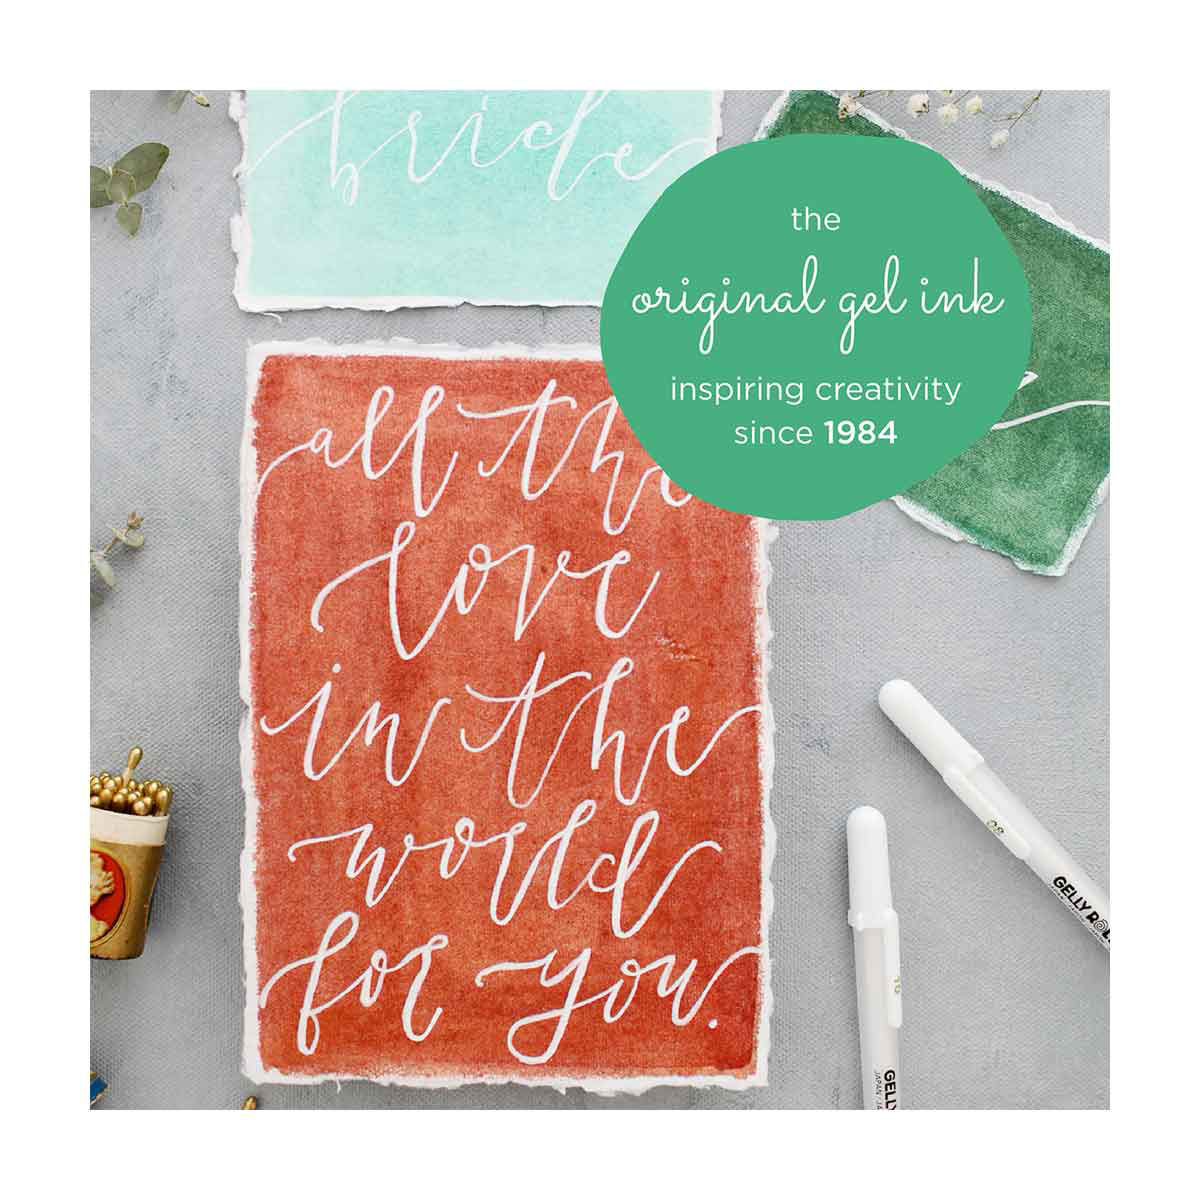 bride
the
original gel ink
inspiring creativity
since 1984
all the
love
in the
world
for you.
08
GELLY ROLL
10
GELLY
JAPAN